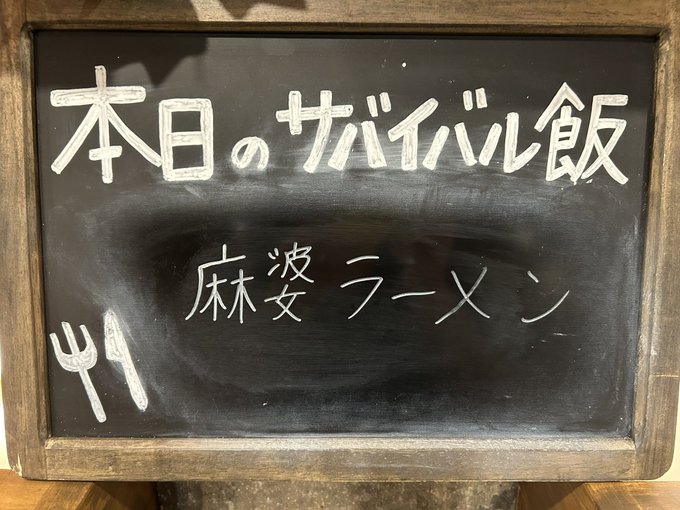 本日のサバイバル飯
麻婆ラーメン